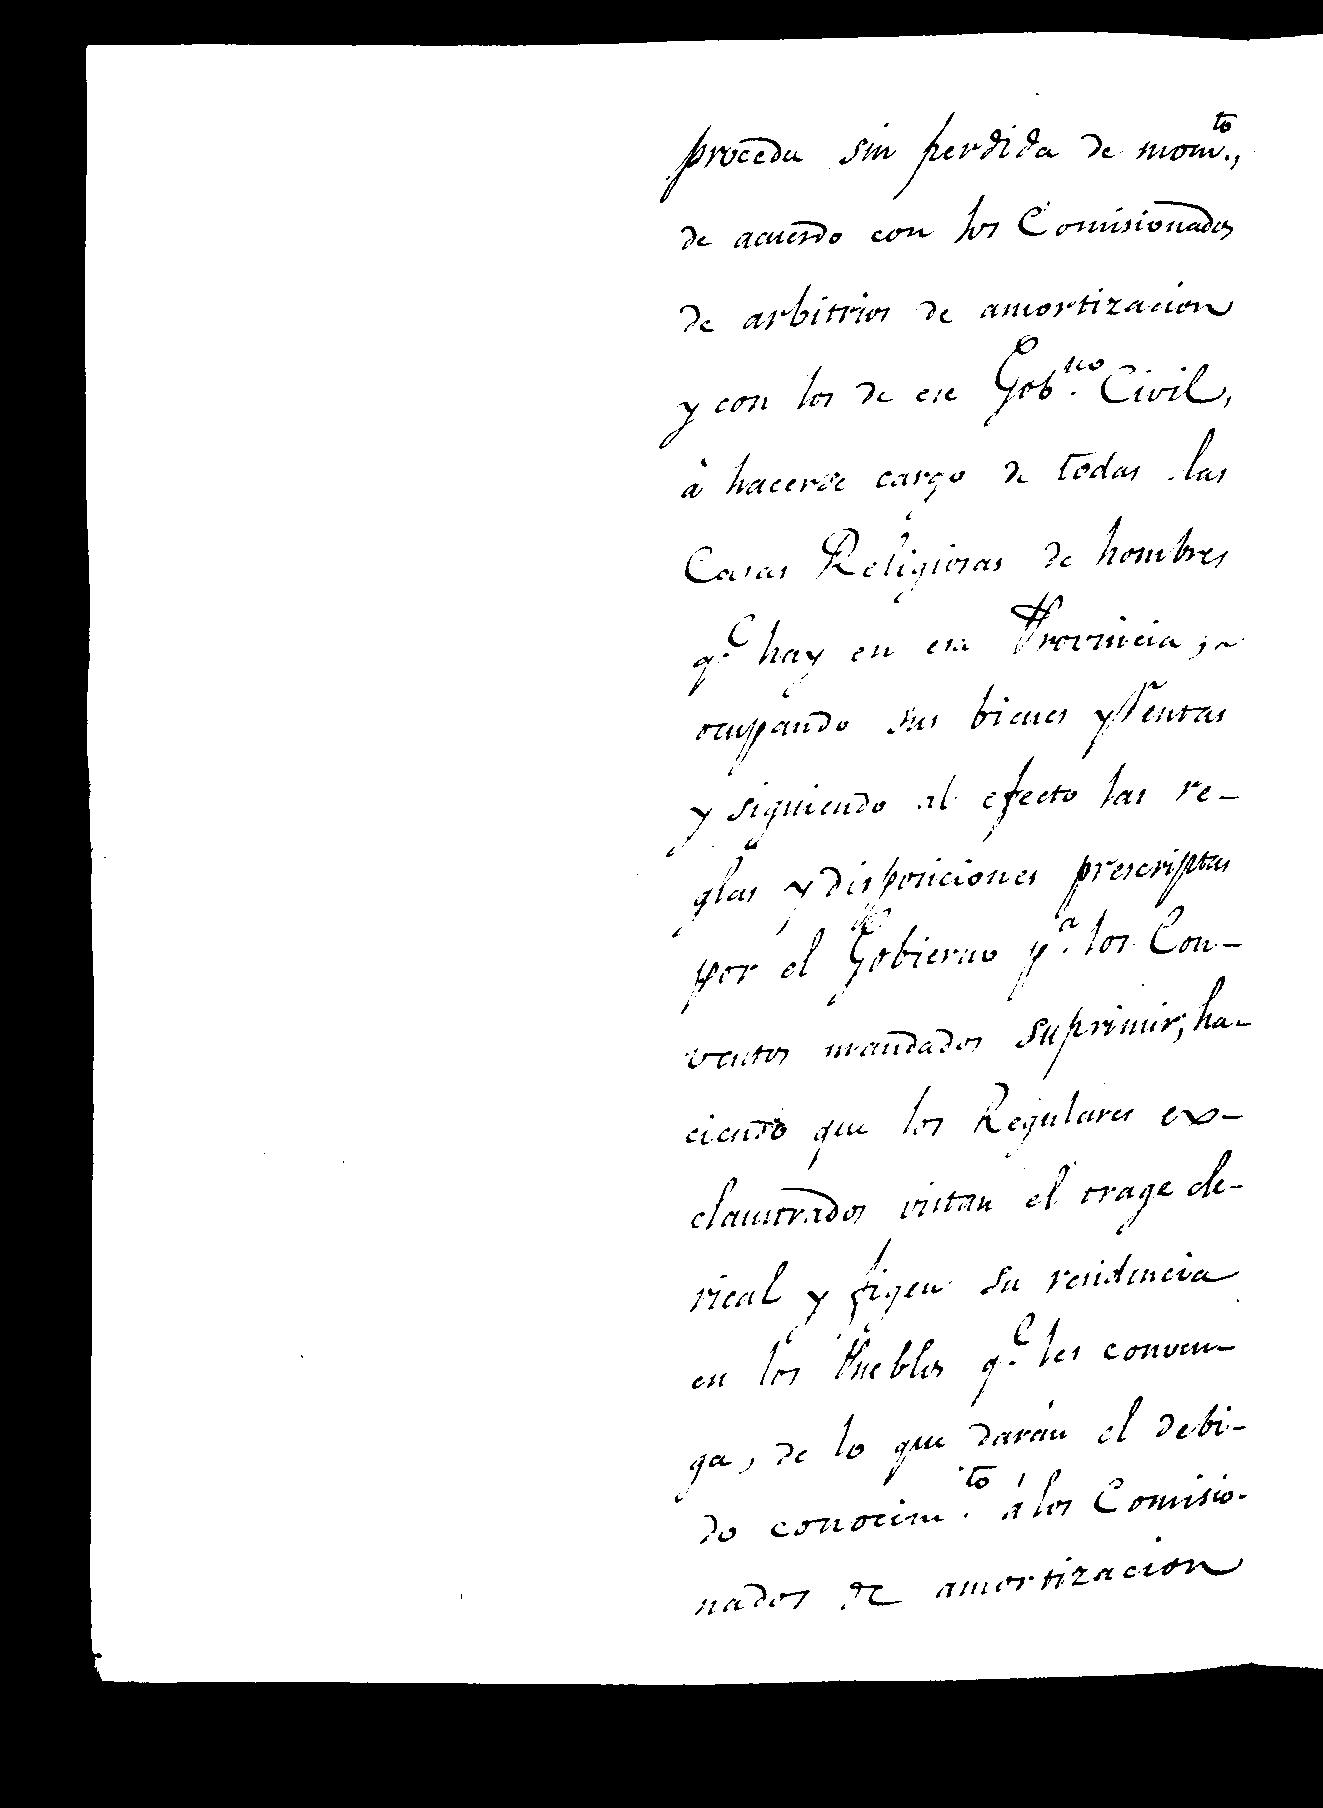 proceda sin perdida de mom.to,
de acuerdo con los Comisionados
de arbitrios de amortizacion
y con los de ese Gob.no Civil,
à hacerse cargo de todas las
Casas Religiosas de hombres
q.e hay en esa Provincia,
ocupando sus bienes y Rentas
y siguiendo al efecto las re-
glas y disposiciones prescriptas
por el Gobierno p.a los Con-
ventos mandados suprimir; ha-
ciendo que los Regulares ex-
claustrados vistan el trage cle-
rical y figen su residencia
en los Pueblos q.e les conven-
ga, de lo que darán el debi-
do conocim.to á los Comisio-
nados de amortizacion